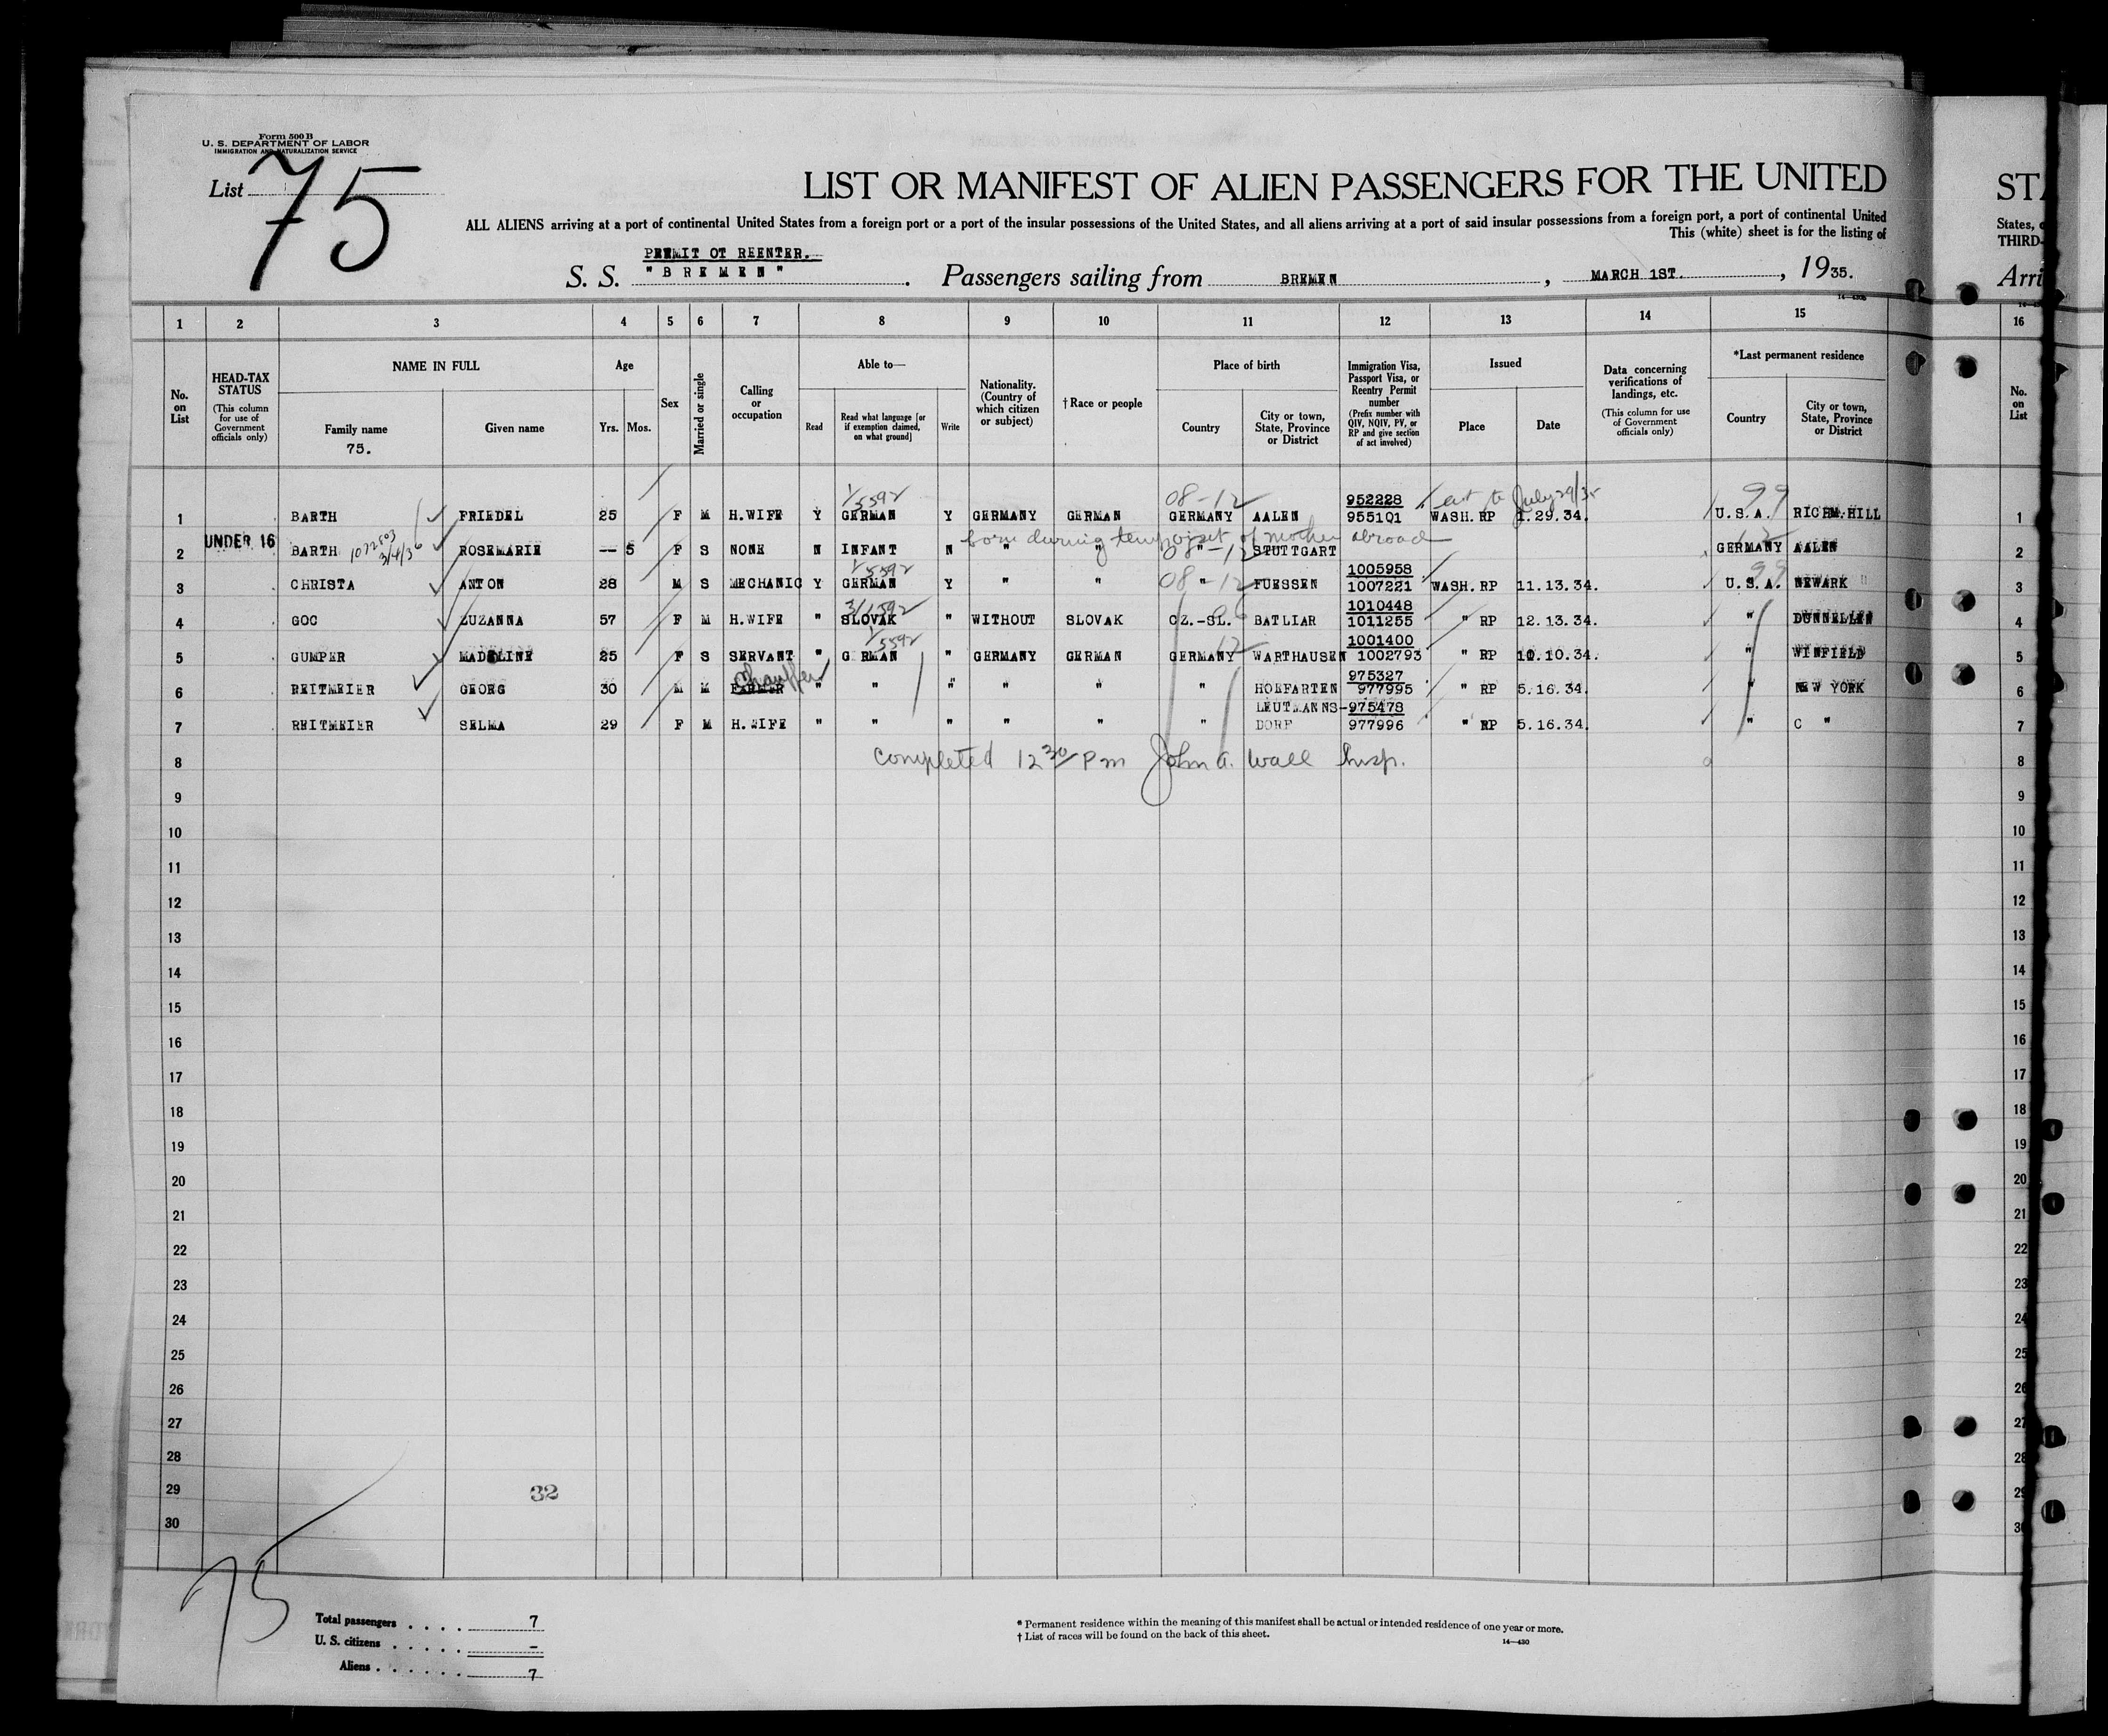 Form 500 B
U. S. DEPARTMENT OF LABOR
IMMIGRATION AND NATURALIZATION SERVICE
List 75
LIST OR MANIFEST OF ALIEN PASSENGERS FOR THE UNITED
STA
ALL ALIENS arriving at a port of continental United States from a foreign port or a port of the insular possessions of the United States, and all aliens arriving at a port of said insular possessions from a foreign port, a port of continental United
States, o
This (white) sheet is for the listing of
THIRD-
PERMIT OT REENTER.
S. S. "BREMEN". Passengers sailing from BREMEN, MARCH 1ST., 1935.
Arri
14—430B
1 2 3 4 5 6 7 8 9 10 11 12 13 14 15 16
No. on List
HEAD-TAX STATUS (This column for use of Government officials only)
NAME IN FULL
Family name
75.
Given name
Age
Yrs. Mos.
Sex
Married or single
Calling or occupation
Able to—
Read
Read what language [or if exemption claimed, on what ground]
Write
Nationality. (Country of which citizen or subject)
† Race or people
Place of birth
Country
City or town, State, Province or District
Immigration Visa, Passport Visa, or Reentry Permit number (Prefix number with QIV, NQIV, PV, or RP and give section of act involved)
Issued
Place
Date
Data concerning verifications of landings, etc. (This column for use of Government officials only)
*Last permanent residence
Country
City or town, State, Province or District
No. on List
1/5592 08-12 952228 ext to July 29/35 99
1 BARTH FRIEDEL 25 F M H.WIFE Y GERMAN Y GERMANY GERMAN GERMANY AALEN 955101 WASH. RP 1.29.34. U.S.A. RICHM.HILL 1
born during temp visit of mother abroad
2 UNDER 16 BARTH 1072503 3/4/36 ROSEMARIE -- 5 F S NONE N INFANT N " " " 08-12 STUTTGART GERMANY AALEN 2
1/5592 1005958 99
3 CHRISTA ANTON 28 M S MECHANIC Y GERMAN Y " " 08-12 " FUESSEN 1007221 WASH. RP 11.13.34. U.S.A. NEWARK " 3
1010448
4 GOC ZUZANNA 57 F M H.WIFE " SLOVAK " WITHOUT SLOVAK CZ.-SL. BATLIAR 1011255 " RP 12.13.34. " DUNNELLEN 4
1/5592 12 1001400
5 GUMPER MADELINE 25 F S SERVANT " GERMAN " GERMANY GERMAN GERMANY WARTHAUSEN 1002793 " RP 10.10.34. " WINFIELD 5
Chauffer 975327
6 REITMEIER GEORG 30 M M FARMER " " " " " " HOEFARTEN 977995 " RP 5.16.34. " NEW YORK 6
LEUTMANNS- 975478
7 REITMEIER SELMA 29 F M H.WIFE " " " " " " DORF 977996 " RP 5.16.34. " C " 7
8 completed 12 30 Pm John A. Wall Insp. 8
9 9
10 10
11 11
12 12
13 13
14 14
15 15
16 16
17 17
18 18
19 19
20 20
21 21
22 22
23 23
24 24
25 25
26 26
27 27
28 28
29 32 29
30 30
75
Total passengers . . . . 7
U. S. citizens . . . . . –
Aliens . . . . . . 7
* Permanent residence within the meaning of this manifest shall be actual or intended residence of one year or more.
† List of races will be found on the back of this sheet.
14—430